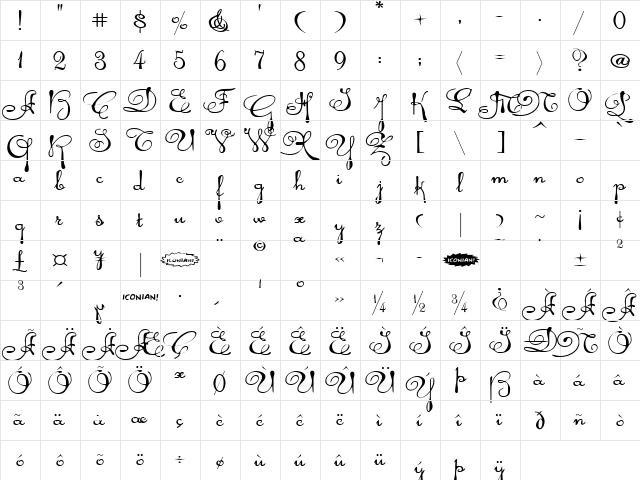 ! " # $ % & ' ( ) * + , - . / 0
1 2 3 4 5 6 7 8 9 : ; < = > ? @
A B C D E F G H I J K L M N O P
Q R S T U V W X Y Z [ \ ] ^ _
a b c d e f g h i j k l m n o p
q r s t u v w x y z { | } ~ ¡ ¢
£ ¤ ¥ | ICONIAN! ¨ © ª « ¬ - ICONIAN! ± ²
³ ´ ICONIAN! · ¸ ¹ º » 1/4 1/2 3/4 ¿ À Á Â
Ã Ä Å Æ Ç È É Ê Ë Ì Í Î Ï Ð Ñ Ò
Ó Ô Õ Ö × Ø Ù Ú Û Ü Ý Þ ß à á â
ã ä å æ ç è é ê ë ì í î ï ð ñ ò
ó ô õ ö ÷ ø ù ú û ü ý þ ÿ